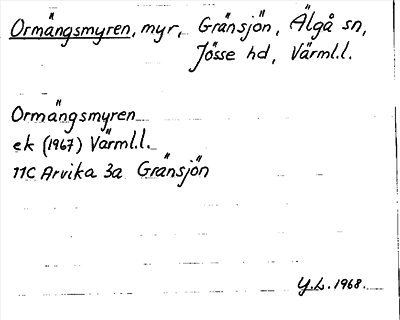 Ormängsmyren, myr, Gränsjön, Älgå sn,
Jösse hd, Värml.l.
Ormängsmyren
ek (1967) Värml.l.
11C Arvika 3a Gränsjön
Y.L. 1968.